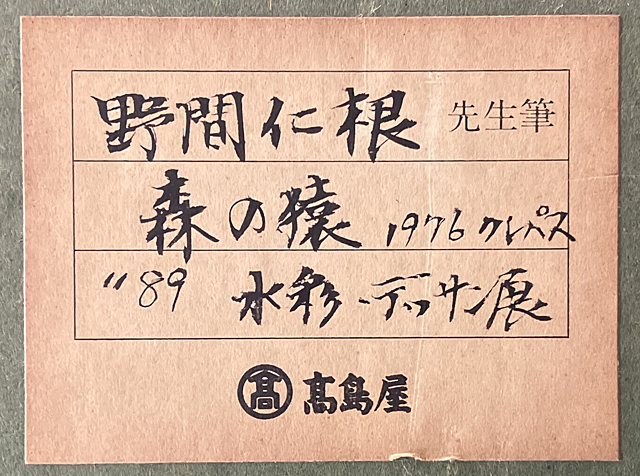 野間仁根 先生筆
森の猿 1976 クレパス
"89 水彩・デッサン展
髙 髙島屋